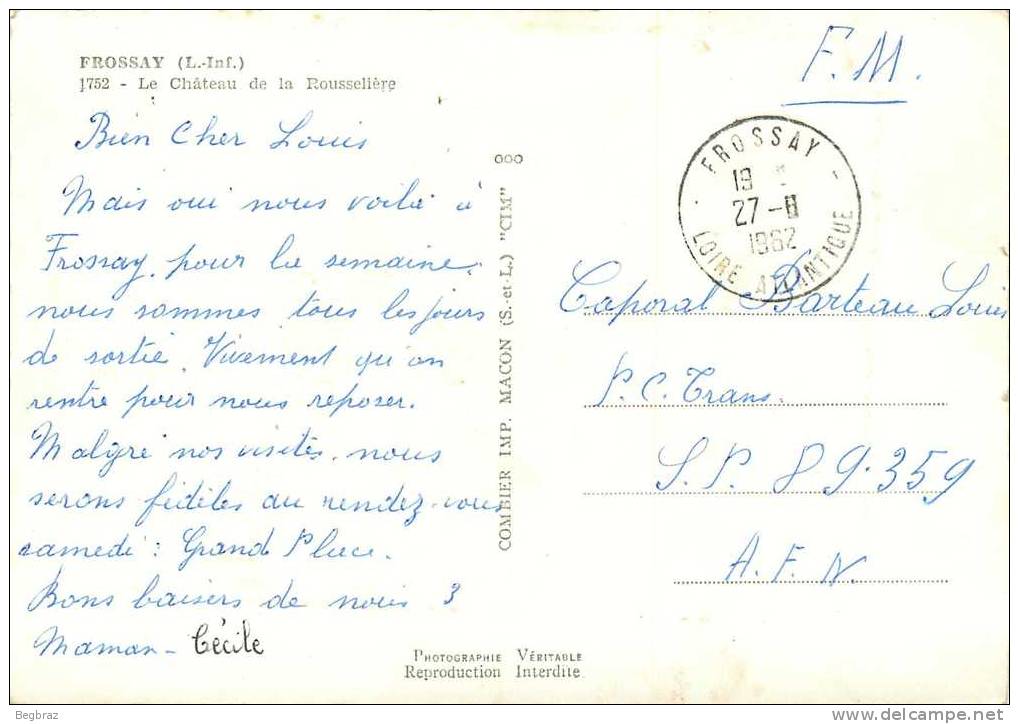 FROSSAY (L.-Inf.)
1752 - Le Château de la Rousselière
Bien Cher Louis
Mais oui nous voilà à
Frossay, pour la semaine,
nous sommes tous les jours
de sortie. Vivement qu'on
rentre pour nous reposer.
Malgré nos visites, nous
serons fidèles au rendez-vous
samedi : Grand Place.
Bons baisers de nous 3
Maman - Cécile
COMBIER IMP. MACON (S.-et-L.) "CIM"
F.M.
FROSSAY
19
27 -
1962
LOIRE ATLANTIQUE
Caporal Barteau Louis
P.C. Trans.
S.P. 89.359
A.F.N.
PHOTOGRAPHIE VÉRITABLE
Reproduction Interdite
Begbraz
www.delcampe.net